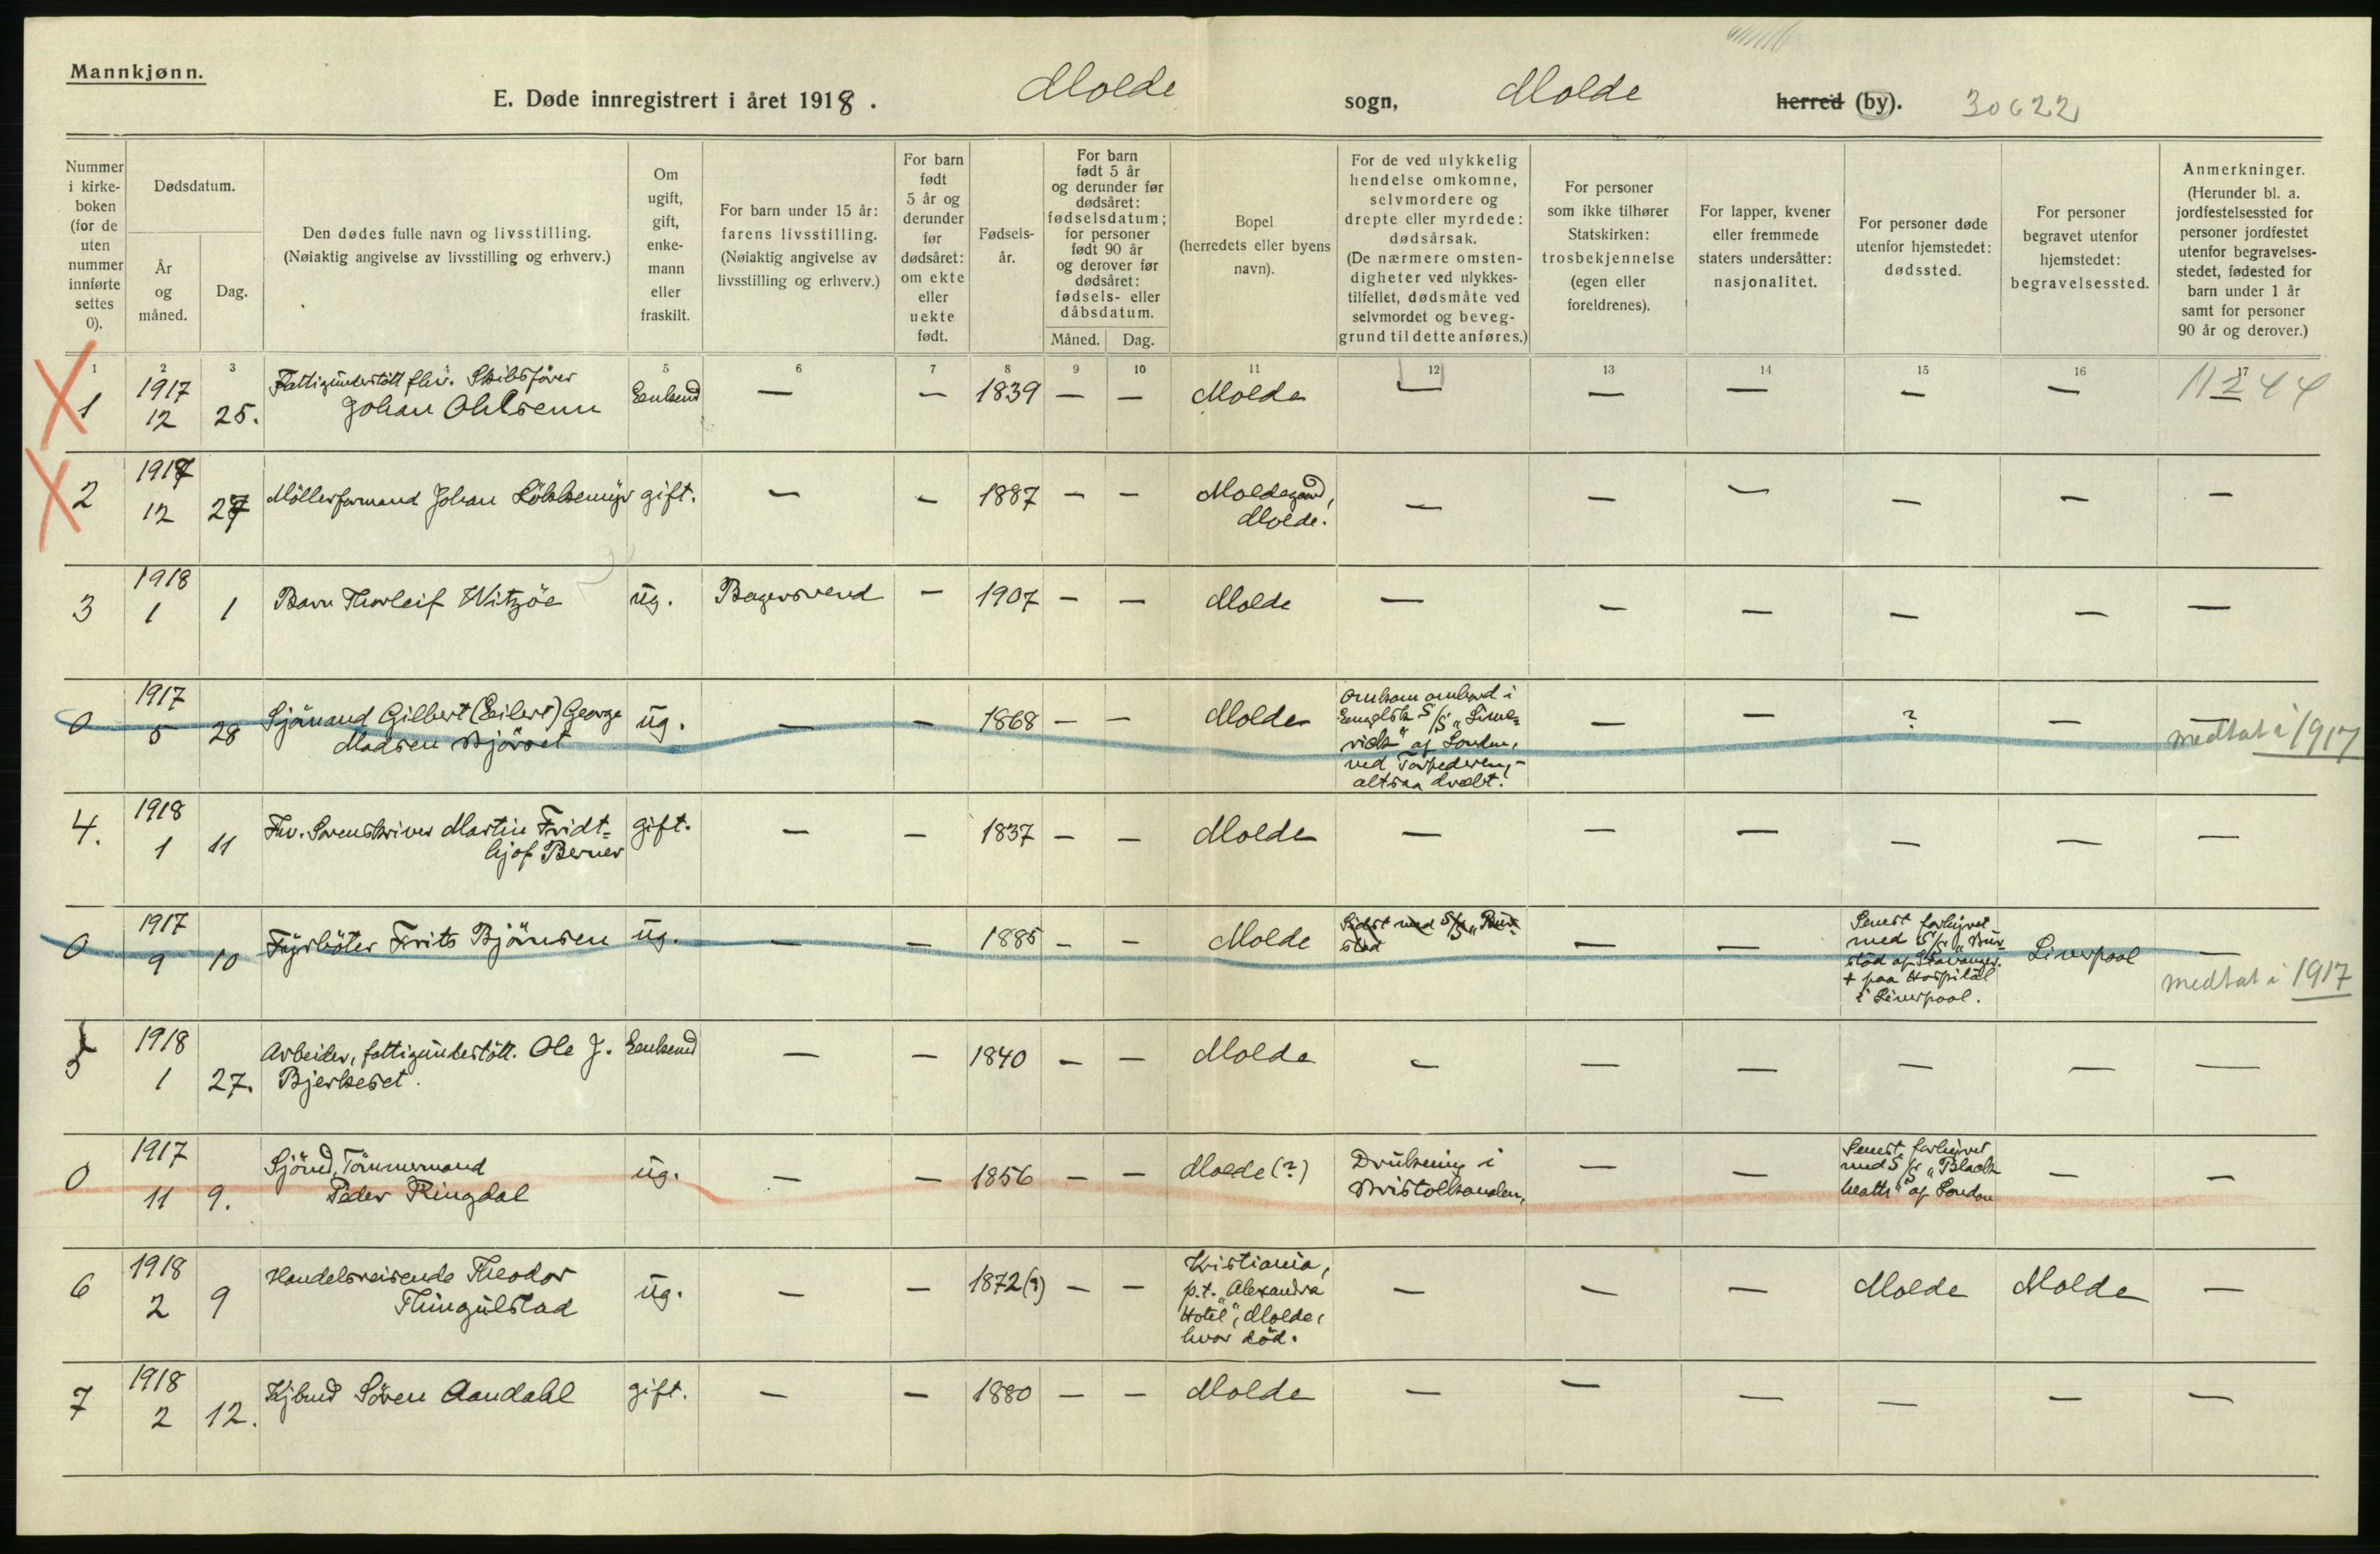 Mannkjønn.
E. Døde innregistrert i året 1918. Molde sogn, Molde herred (by). 30622
Nummer i kirke-boken (for de uten nummer innførte settes 0).
Dødsdatum.
År og måned.
Dag.
Den dødes fulle navn og livsstilling.
(Nøiaktig angivelse av livsstilling og erhverv.)
Om ugift, gift, enke-mann eller fraskilt.
For barn under 15 år: farens livsstilling.
(Nøiaktig angivelse av livsstilling og erhverv.)
For barn født 5 år og derunder før dødsåret: om ekte eller uekte født.
Fødsels-år.
For barn født 5 år og derunder før dødsåret: fødselsdatum; for personer født 90 år og derover før dødsåret: fødsels- eller dåbsdatum.
Måned. Dag.
Bopel (herredets eller byens navn).
For de ved ulykkelig hendelse omkomne, selvmordere og drepte eller myrdede: dødsårsak.
(De nærmere omsten-digheter ved ulykkes-tilfellet, dødsmåte ved selvmordet og beveg-grund til dette anføres.)
For personer som ikke tilhører Statskirken: trosbekjennelse (egen eller foreldrenes).
For lapper, kvener eller fremmede staters undersåtter: nasjonalitet.
For personer døde utenfor hjemstedet: dødssted.
For personer begravet utenfor hjemstedet: begravelsessted.
Anmerkninger.
(Herunder bl. a. jordfestelsessted for personer jordfestet utenfor begravelses-stedet, fødested for barn under 1 år samt for personer 90 år og derover.)
1 2 3 5 6 7 8 9 10 11 12 13 14 15 16 17
1 1917 12 25. Fattigunderstött Skibsförer Johan Ohlsenn Enkemd — — 1839 — — Molde — — — — — 11244
2 1917 12 27 Möllerformand Johan Lökkemyr gift. — — 1887 — — Moldegaard, Molde. — — — — — —
3 1918 1 1 Barn Thorleif Witzöe ug. Bagersvend — 1907 — — Molde — — — — — —
0 1917 5 28 Sjömand Gilbert (Eilert) George Madsen Bjørset ug. — — 1868 — — Molde Omkom ombord i Engelsk S/S „Lime-rick" af London, ved Torpedering, altsaa dræbt. — — ? — — medtat i 1917
4. 1918 1 11 Fhv. Sorenskriver Martin Fridt-hjof Berner gift. — — 1837 — — Molde — — — — — —
0 1917 9 10 Fyrböter Frits Björnsen ug. — — 1885 — — Molde Sidst med S/S „Bur-stad — — Senest forhyret med S/S „Bur-stad af Stavanger. + paa Hospital i Liverpool. Liverpool — medtat i 1917
5 1918 1 27. Arbeider, fattigunderstött. Ole J. Bjerkeset. Enkemd — — 1840 — — Molde — — — — — —
0 1917 11 9. Sjömd, Tömmermand Peder Ringdal ug. — — 1856 — — Molde (?) Drukning i Bristolkanalen, — — Senest forhyret med S/S „Black heath" af London — —
6 1918 2 9 Handelsreisende Theodor Thingulstad ug. — — 1872 (?) — — Kristiania, p.t. „Alexandra Hotel", Molde, hvor död. — — — Molde Molde —
7 1918 2 12. Kjbmd Sören Aandahl gift. — — 1880 — — Molde — — — — — —